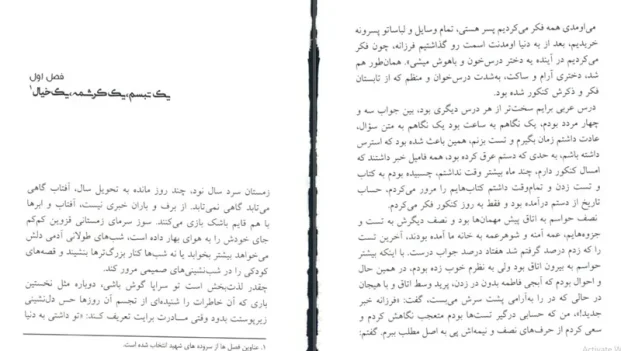 فصل اول
یک تبسم، یک کرشمه، یک خیال۱
زمستان سرد سال نود، چند روز مانده به تحویل سال، آفتاب گاهی
می‌تابد گاهی نمی‌تابد. از برف و باران خبری نیست، آفتاب و ابرها
با هم قایم باشک بازی می‌کنند. سوز سرمای زمستانی قزوین کم‌کم
جای خودش را به هوای بهار داده است، شب‌های طولانی آدمی دلش
می‌خواهد بیشتر بخوابد یا نه شب‌ها کنار بزرگ‌ترها بنشیند و قصه‌های
کودکی را در شب‌نشینی‌های صمیمی مرور کند.
چقدر لذت‌بخش است تو سراپا گوش باشی، دوباره مثل نخستین
باری که آن خاطرات را شنیده‌ای از تجسم آن روزها حس دل‌نشینی
زیرپوستت بدود وقتی مادرت برایت تعریف کند: «تو داشتی به دنیا
۱. عناوین فصل ها از سروده های شهید انتخاب شده است.
می‌اومدی همه فکر می‌کردیم پسر هستی، تمام وسایل و لباساتو پسرونه
خریدیم، بعد از به دنیا اومدنت اسمت رو گذاشتیم فرزانه، چون فکر
می‌کردیم در آینده یه دختر درس‌خون و باهوش میشی». همان‌طور هم
شد، دختری آرام و ساکت، به‌شدت درس‌خوان و منظم که از تابستان
فکر و ذکرش کنکور شده بود.
درس عربی برایم سخت‌تر از هر درس دیگری بود، بین جواب سه و
چهار مردد بودم، یک نگاهم به ساعت بود یک نگاهم به متن سؤال،
عادت داشتم زمان بگیرم و تست بزنم، همین باعث شده بود که استرس
داشته باشم، به حدی که دستم عرق کرده بود، همه فامیل خبر داشتند که
امسال کنکور دارم، چند ماه بیشتر وقت نداشتم، چسبیده بودم به کتاب
و تست زدن و تمام‌وقت داشتم کتاب‌هایم را مرور می‌کردم، حساب
تاریخ از دستم درآمده بود و فقط به روز کنکور فکر می‌کردم.
نصف حواسم به اتاق پیش مهمان‌ها بود و نصف دیگرش به تست و
جزوه‌هایم، عمه آمنه و شوهرعمه به خانه ما آمده بودند، آخرین تست
را که زدم درصد گرفتم شد هفتاد درصد جواب درست. با اینکه بیشتر
حواسم به بیرون اتاق بود ولی به نظرم خوب زده بودم، در همین حال
و احوال بودم که آبجی فاطمه بدون در زدن، پرید وسط اتاق و با هیجان
در حالی که در را به‌آرامی پشت سرش می‌بست، گفت: «فرزانه خبر
جدید!»، من که حسابی درگیر تست‌ها بودم متعجب نگاهش کردم و
سعی کردم از حرف‌های نصف و نیمه‌اش پی به اصل مطلب ببرم. گفتم:
Activate W